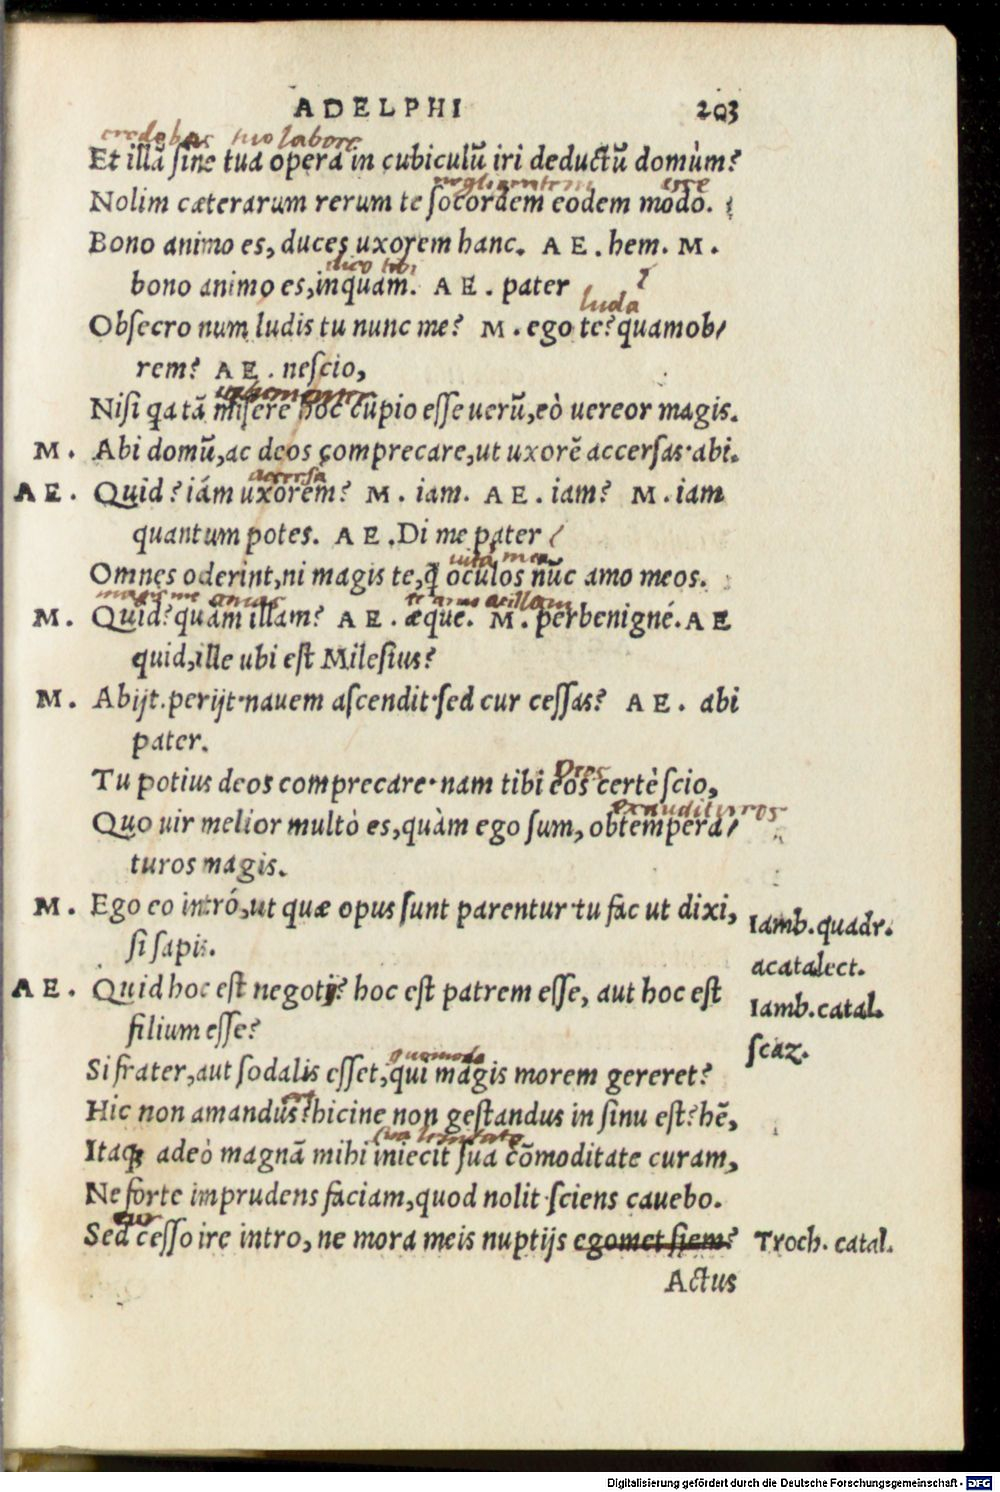 ADELPHI 203
credebas tuo labore
Et illã sine tua opera in cubiculũ iri deductũ domùm?
negligentem esse
Nolim cæterarum rerum te socordem eodem modo.
Bono animo es, duces uxorem hanc. AE. hem. M.
dico tibi
bono animo es, inquam. AE. pater
luda
Obsecro num ludis tu nunc me? M. ego te? quamob/
rem? AE. nescio,
uehementer
Nisi qa tã misere hoc cupio esse uerũ, eò uereor magis.
M. Abi domũ, ac deos comprecare, ut uxorẽ accersas·abi.
accersa
AE. Quid? iám uxorem? M. iam. AE. iam? M. iam
quantum potes. AE. Di me pater
uita mea
Omnes oderint, ni magis te, q̃ oculos nũc amo meos.
magis me amas te amo ac illam
M. Quid? quàm illam? AE. æque. M. perbenigné. AE
quid, ille ubi est Milesius?
M. Abijt. perijt·nauem ascendit·sed cur cessas? AE. abi
pater.
Deos
Tu potius deos comprecare·nam tibi eos certè scio,
exaudituros
Quo uir melior multò es, quàm ego sum, obtempera/
turos magis.
M. Ego eo intró, ut quæ opus sunt parentur·tu fac ut dixi,
si sapis.
Iamb. quadr.
acatalect.
AE. Quid hoc est negotij? hoc est patrem esse, aut hoc est
filium esse?
Iamb. catal.
scaz.
quomodo
Si frater, aut sodalis esset, qui magis morem gereret?
est
Hic non amandus? hicine non gestandus in sinu est? hẽ,
sua lenitate
Itaq; adeò magnã mihi iniecit sua cõmoditate curam,
Ne forte imprudens faciam, quod nolit·sciens cauebo.
cur
Sed cesso ire intro, ne mora meis nuptijs egomet siem? Troch. catal.
Actus
Digitalisierung gefördert durch die Deutsche Forschungsgemeinschaft - DFG